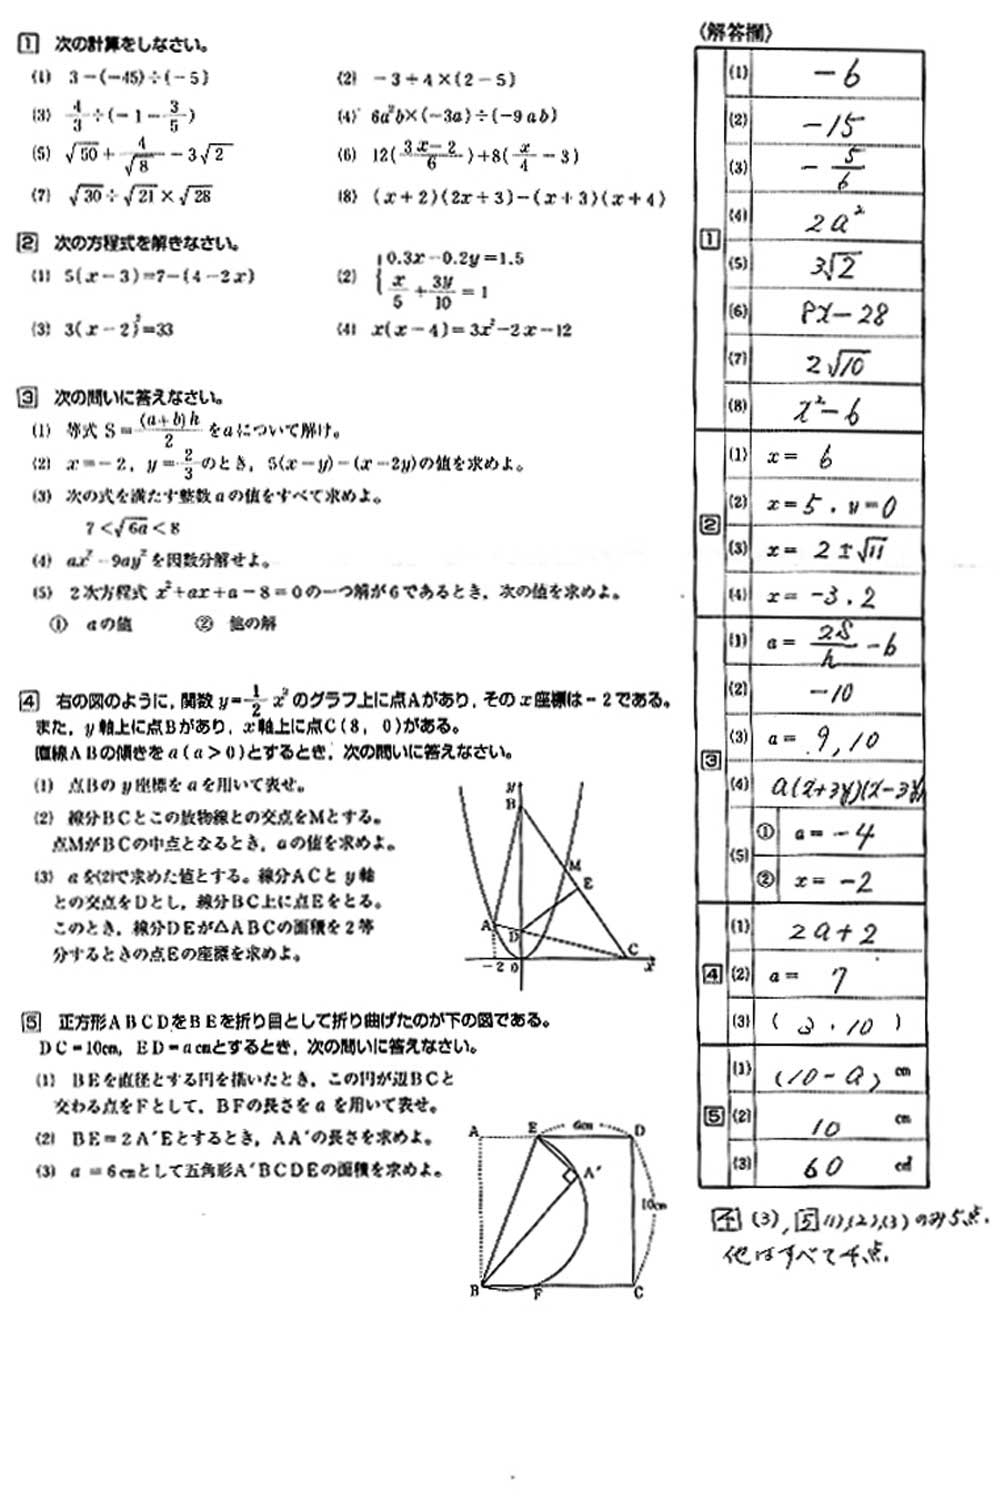 1 次の計算をしなさい。
(1) 3-(-45)÷(-5)
(2) -3+4×(2-5)
(3) 4/3÷(-1-3/5)
(4) 6a²b×(-3a)÷(-9ab)
(5) √50+4/√8-3√2
(6) 12(3x-2/6)+8(x/4-3)
(7) √30÷√21×√28
(8) (x+2)(2x+3)-(x+3)(x+4)
2 次の方程式を解きなさい。
(1) 5(x-3)=7-(4-2x)
(2) {0.3x-0.2y=1.5
x/5+3y/10=1
(3) 3(x-2)²=33
(4) x(x-4)=3x²-2x-12
3 次の問いに答えなさい。
(1) 等式 S=(a+b)h/2 をaについて解け。
(2) x=-2, y=2/3のとき, 5(x-y)-(x-2y)の値を求めよ。
(3) 次の式を満たす整数aの値をすべて求めよ。
7<√6a<8
(4) ax²-9ay²を因数分解せよ。
(5) 2次方程式 x²+ax+a-8=0の一つ解が6であるとき, 次の値を求めよ。
① aの値 ② 他の解
4 右の図のように, 関数 y=1/2x²のグラフ上に点Aがあり, そのx座標は-2である。
また, y軸上に点Bがあり, x軸上に点C(8, 0)がある。
直線ABの傾きをa(a>0)とするとき, 次の問いに答えなさい。
(1) 点Bのy座標をaを用いて表せ。
(2) 線分BCとこの放物線との交点をMとする。
点MがBCの中点となるとき, aの値を求めよ。
(3) aを(2)で求めた値とする。線分ACとy軸
との交点をDとし, 線分BC上に点Eをとる。
このとき, 線分DEが△ABCの面積を2等
分するときの点Eの座標を求めよ。
y
B
M
E
A
D
C
-2 0 x
5 正方形ABCDをBEを折り目として折り曲げたのが下の図である。
DC=10cm, ED=acmとするとき, 次の問いに答えなさい。
(1) BEを直径とする円を描いたとき, この円が辺BCと
交わる点をFとして, BFの長さをaを用いて表せ。
(2) BE=2A′Eとするとき, AA′の長さを求めよ。
(3) a=6cmとして五角形A′BCDEの面積を求めよ。
A E 6cm D
A′
10cm
B F C
〈解答欄〉
1
(1) -6
(2) -15
(3) -5/6
(4) 2a²
(5) 3√2
(6) 8x-28
(7) 2√10
(8) x²-6
2
(1) x= 6
(2) x=5, y=0
(3) x= 2±√11
(4) x= -3, 2
3
(1) a= 2S/h-b
(2) -10
(3) a= 9, 10
(4) a(x+3y)(x-3y)
(5) ① a=-4
② x= -2
4
(1) 2a+2
(2) a= 7
(3) ( 3, 10 )
5
(1) (10-a) cm
(2) 10 cm
(3) 60 cm²
4(3), 5(1),(2),(3)のみ5点.
他はすべて4点.